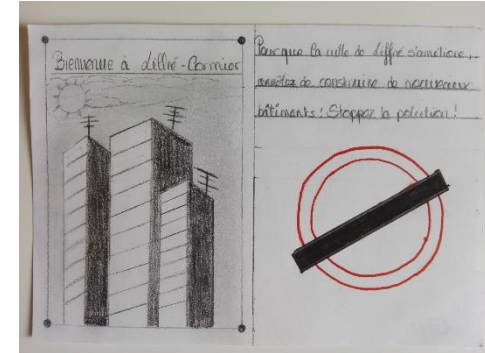 Bienvenue à Liffré-Cormier
Pour que la ville de Liffré s'améliore,
arrêtez de construire de nouveaux
bâtiments ! Stoppez la polution !